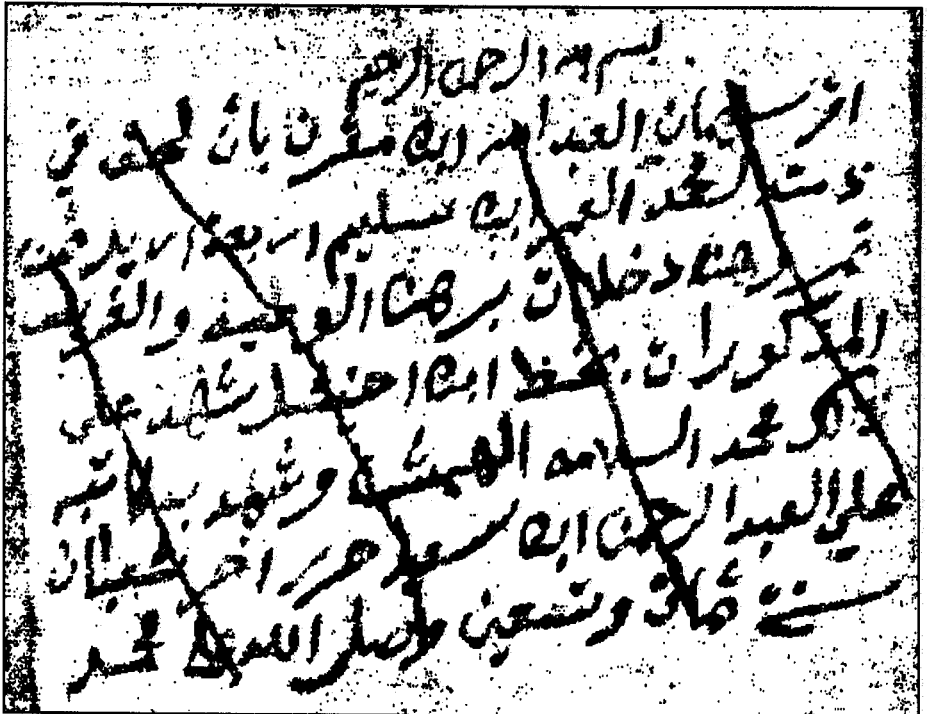 بسم الله الرحمن الرحيم
اقر سليمان العبد الله ابن مقرن بان لحق في
ذمته لمحمد العبد ابن سليم اربعة اريل
دخلات برهنا والغريب
المذكوران بخط ابن شهد على
ذلك محمد السلامه وشهد به كاتبه
علي العبد الرحمن ابن سعد حرر اخر شعبان
سنة ثمان وتسعين وصلى الله على محمد